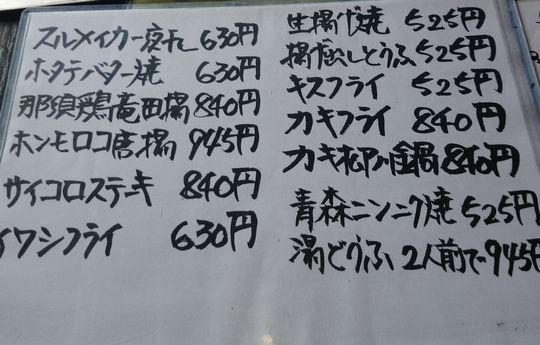 スルメイカ一夜干し 630円
ホタテバター焼 630円
那須鶏竜田揚 840円
ホンモロコ唐揚 945円
サイコロステーキ 840円
イワシフライ 630円
生揚げ焼 525円
揚げだしどうふ 525円
キスフライ 525円
カキフライ 840円
カキ柳川鍋 840円
青森ニンニク焼 525円
湯どうふ 2人前で 945円